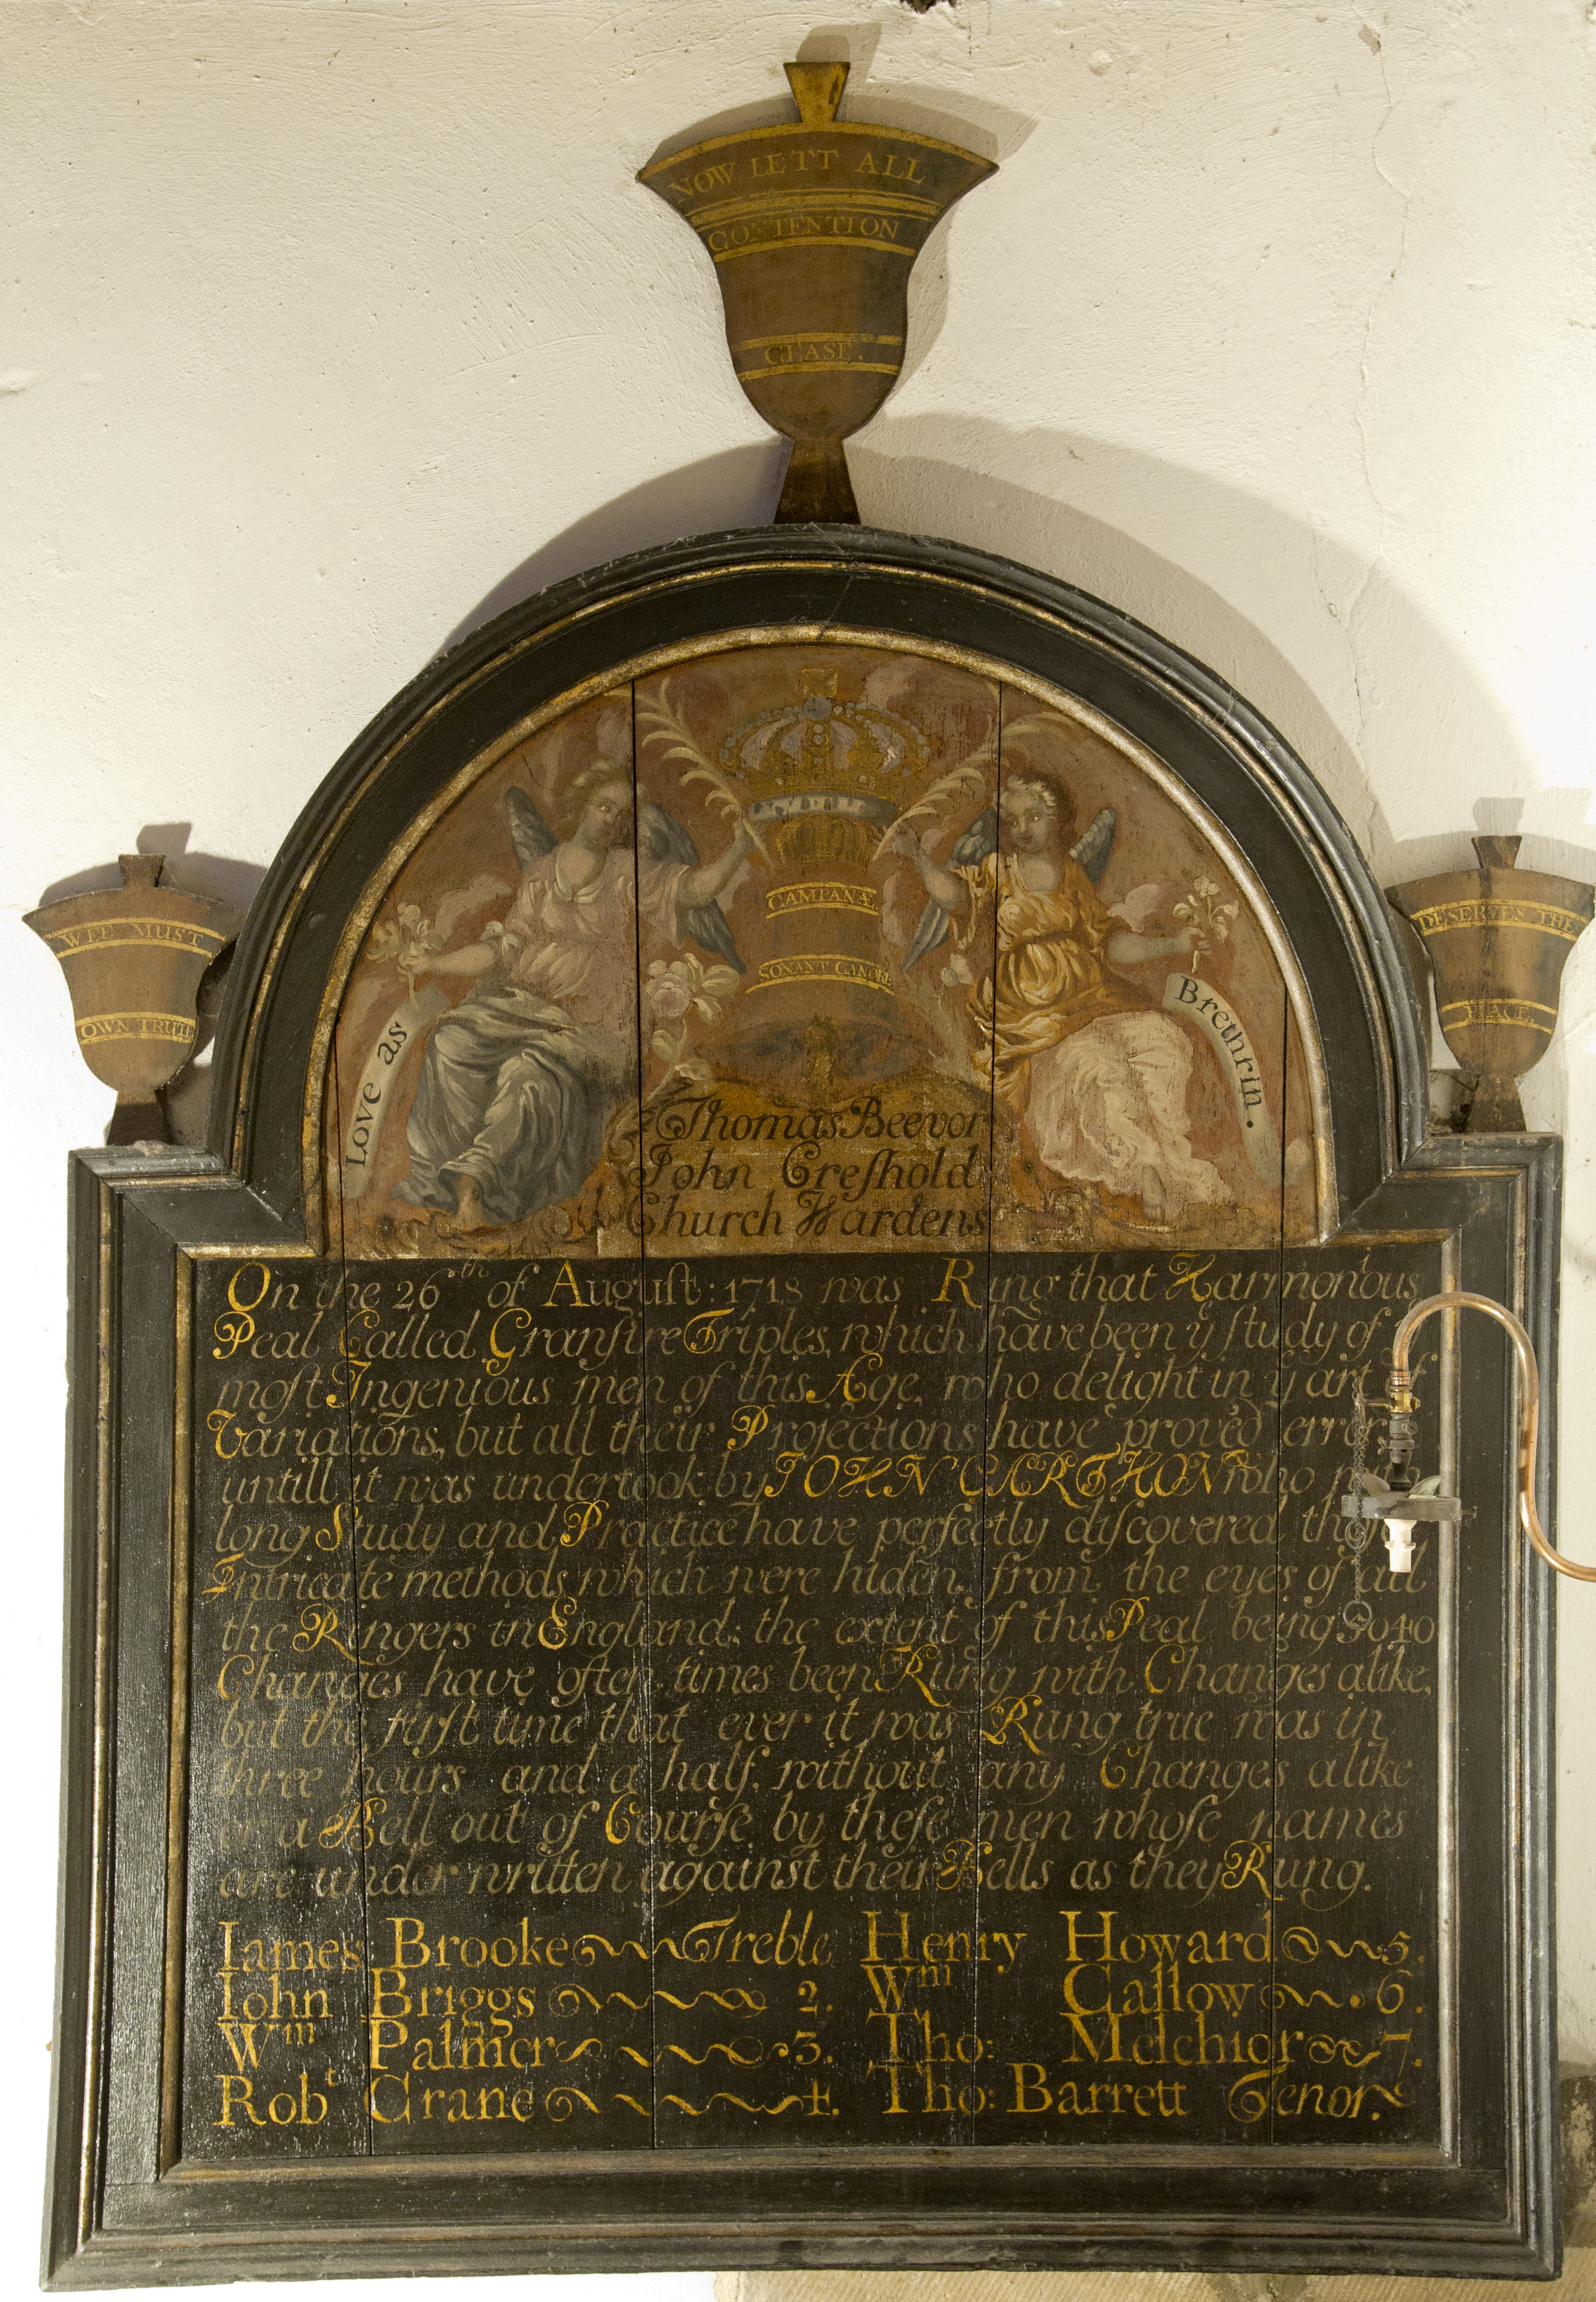 NOW LETT ALL
CONTENTION
CEASE.
WEE MUST
OWN TRUTH
DESERVES THE
PLACE.
CAMPANÆ
SONANT CANORE
Love as
Brethrin.
Thomas Beevor
John Creſhold
Church Wardens
On the 26th of Auguſt: 1718 was Rung that Harmonious
Peal Called Granſire Triples, which have been yͤ ſtudy of
moſt Ingenious men of this Age, who delight in yͤ art of
Variations, but all their Projections have proved
untill it was undertook by JOHN GARTHON who
long Study and Practice have perfectly diſcovered
Intricate methods, which were hiden, from, the eyes of all
the Ringers in England; the extent of this Peal being 5040
Changes have often times been Rung with Changes alike,
but the firſt time that ever it was Rung true was in
three hours and a half, without any Changes alike
or a Bell out of Courſe by theſe men whoſe names
are under written against their Bells as they Rung.
Iames Brooke Treble Henry Howard 5.
Iohn Briggs 2. Wm Callow 6.
Wm Palmer 3. Tho: Melchior 7.
Robt Crane 4. Tho: Barrett Tenor.